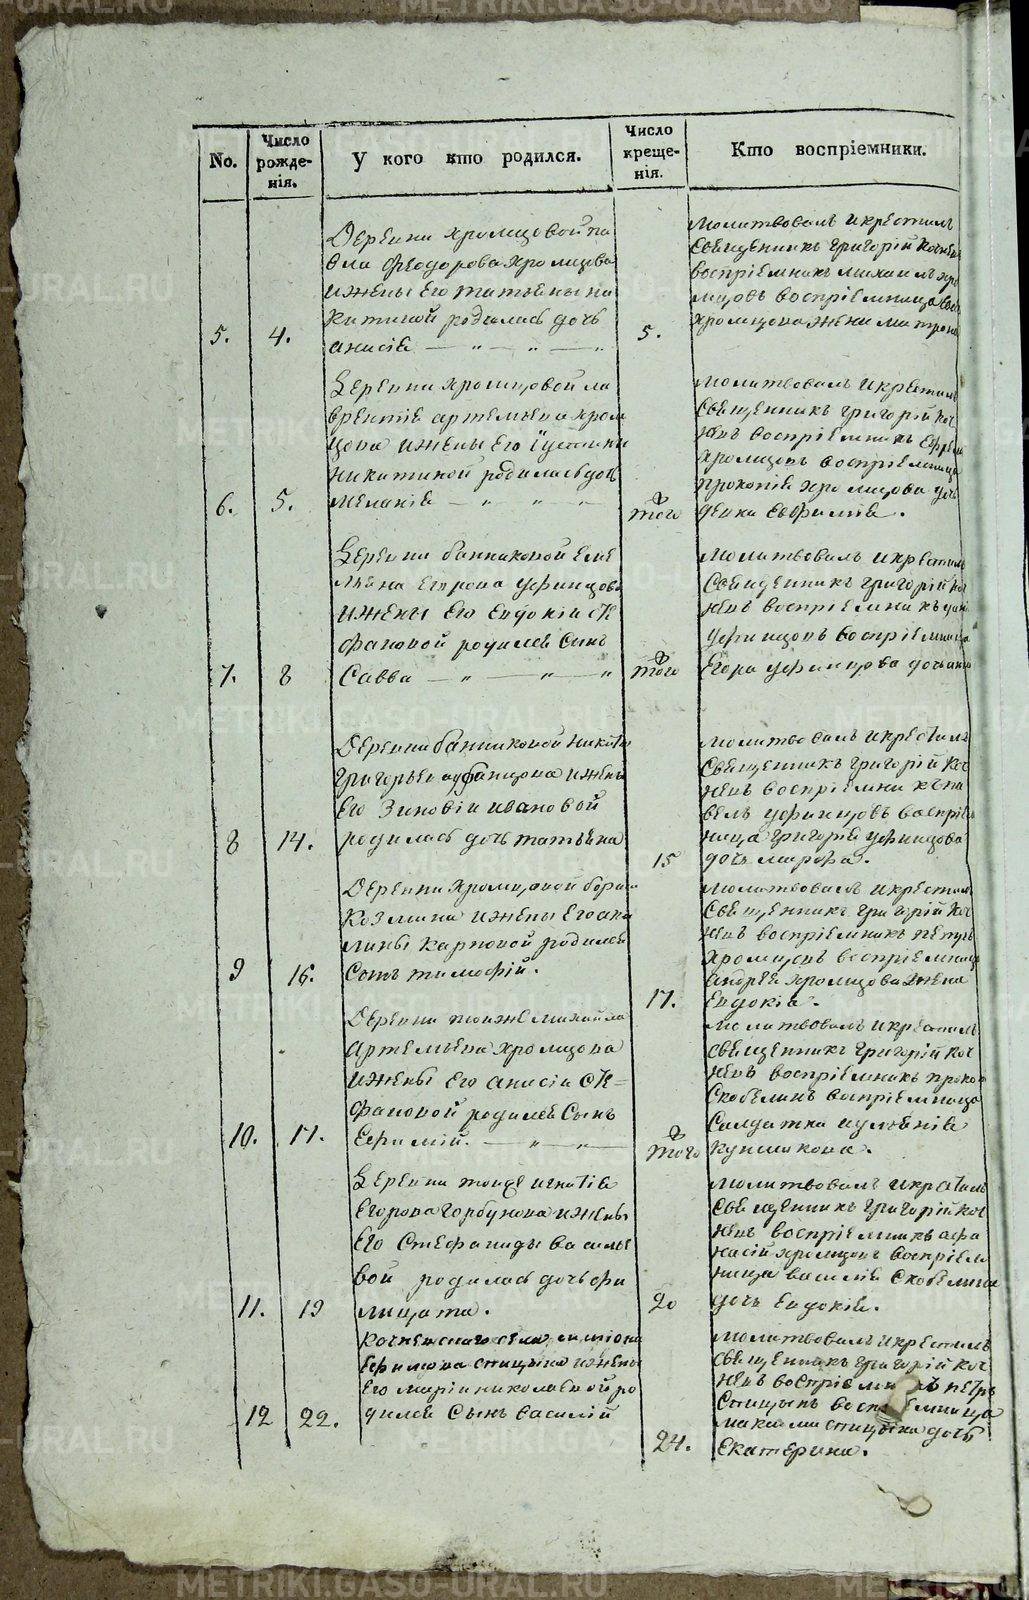 No.
Число рожде-нія.
У кого кто родился.
Число креще-нія.
Кто воспріемники.
5.
4.
Деревни хромцовой па
вла Феодорова хромцова
ижены Его татьяны ни
китиной родилась дочь
анисія
5.
молитвовалъ икрестилъ
Свѣщенникъ григорій
воспріемникъ михаилъ хро
мцовъ воспріемница
хромцова жена матрона
6.
5.
Деревни хромцовой ла
врентія артемьева хром
цова ижены Его Іустины
никитиной родиласьдочь
меланія
того
молитвовалъ икрестилъ
Свѣщенникъ григорій коч
невъ воспріемникъ Ефремъ
хромцовъ воспріемница
прокопія хромцова дочь
девка Евфимія.
7.
8
Деревни банниковой Еме
льяна Егорова уфинцова
ижены Его Евдокіи Сте
фановой родился Сынъ
Савва
того
молитвовалъ икрестилъ
Свѣщенникъ григорій коч
невъ воспріемникъ
уфинцовъ воспріемница
Егора уфинцова дочь
8
14.
Деревни банниковой никиты
григорьева уфинцова ижены
Его Зиновіи ивановой
родилась дочь татьяна
15
молитвовалъ икрестилъ
Свѣщенникъ григорій коч
невъ воспріемникъ па
велъ уфинцовъ воспріем
ница григорія уфинцова
дочь марфа.
9
16.
Деревни хромцовой бориса
Козмина ижены Его аки
лины карповой родился
Сынъ тимофій.
17.
молитвовалъ икрестилъ
Свѣщенникъ григорій коч
невъ воспріемникъ петръ
хромцовъ воспріемница
андрея хромцова жена
Евдокіа.
10.
17.
Деревни тоиже михайла
артемьева хромцова
ижены Его анисіи Сте=
фановой родился Сынъ
Ефимій.
того
молитвовалъ икрестилъ
свѣщенникъ григорій коч
невъ воспріемникъ проко
Скобелинъ воспріемница
Салдатка иулианія
кунщикова.
11.
19
Деревни тоиже игнатія
Егорова горбунова ижены
Его Стефаниды василье
вой родилась дочь фи
лицата.
20
молитвовалъ икрстилъ
свѣщенникъ григорій коч
невъ воспріемникъ афа
насій хромцовъ воспріем
ница василія Скобелина
дочь Евдокія.
12
22.
Кочневскаго села симиона
Ефимова спицына ижены
Его маріи николаевой ро
дился Сынъ василій
24.
молитвовалъ икрестилъ
свѣщенникъ григорій коч
невъ воспріемникъ петръ
Спицынъ воспріемница
максима спицына дочь
Екатерина.
METRIKI.GASO-URAL.RU